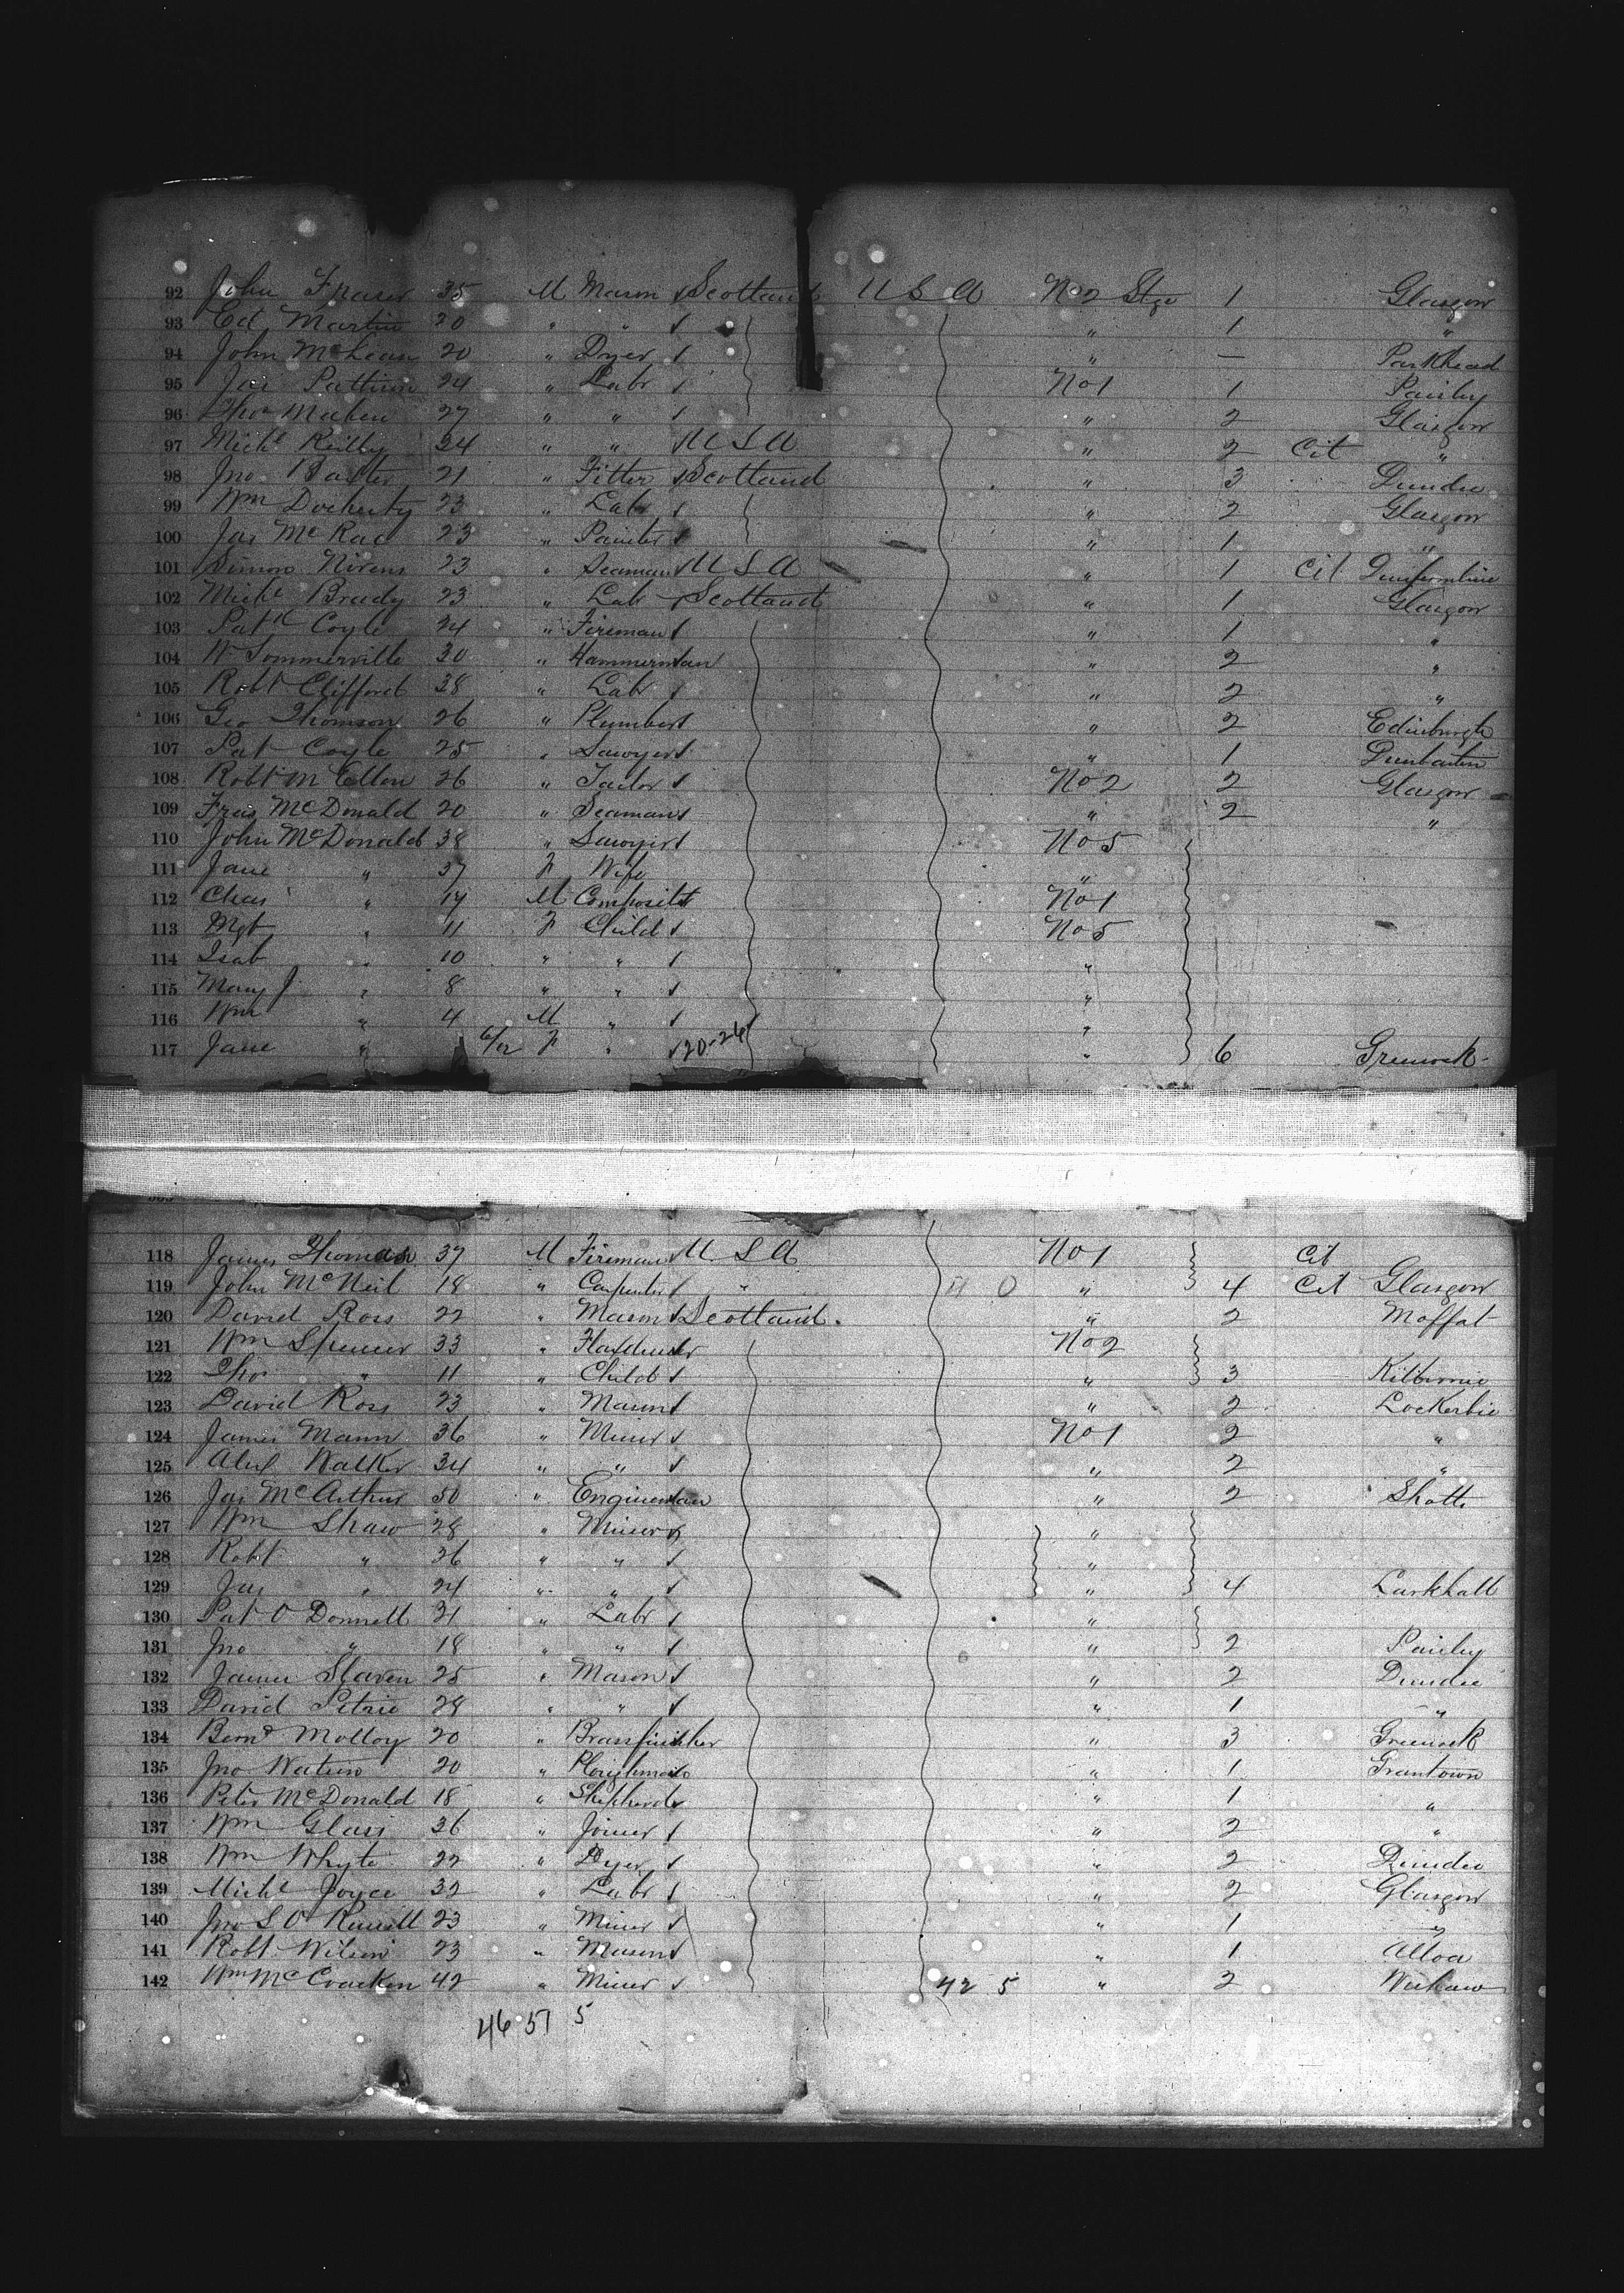 92 John Fraser 35 M Mason Scotland U S A No 2 Stge 1 Glasgow
93 Ed Martin 20 " " 1 "
94 John McLean 20 " Dyer " — Parkhead
95 Jas Pattison 24 " Labr No 1 1 Paisley
96 Thos 27 " " " 2 Glasgow
97 Michl Reilly 24 " " U S A " 2 Cit "
98 Jno Baxter 21 " Fitter Scotland " 3 Dundee
99 Wm Docherty 23 " Labr " 2 Glasgow
100 Jas McRae 23 " Painter " 1 "
101 Simon Nivens 23 " Seaman U S A " 1 Cit Dunfermline
102 Michl Brady 23 " Labr Scotland " 1 Glasgow
103 Patk Coyle 24 " Fireman " 1 "
104 W Sommerville 30 " Hammerman " 2 "
105 Robt Clifford 38 " Labr " 2 "
106 Geo Thomson 26 " Plumber " 2 Edinburgh
107 Pat Coyle 25 " Sawyer " 1 Dumbarton
108 Robt 26 " Tailor No 2 2 Glasgow
109 Fras McDonald 20 " Seaman " 2 "
110 John McDonald 38 " Sawyer No 5
111 Jane " 37 F Wife "
112 Chas " 14 M Compositr No 1
113 Mgt " 11 F Child No 5
114 Isab " 10 " " "
115 Mary J " 8 " " "
116 Wm " 4 M " "
117 Jane " 6/12 F " 20-26 " 6 Greenock
118 James Thomas 37 M Fireman U S A No 1 Cit
119 John McNeil 18 " Carpenter " " 4 Cit Glasgow
120 David Ross 22 " Mason Scotland " 2 Moffat
121 Wm Spencer 33 " No 2
122 Thos " 11 " Child " 3 Kilbirnie
123 David Ross 23 " Mason " 2 Lockerbie
124 James Mann 36 " Miner No 1 2 "
125 Alex Walker 34 " " " 2 "
126 Jas McArthur 50 " Engineman " 2 Shotts
127 Wm Shaw 28 " Miner "
128 Robt " 26 " " "
129 Jas " 24 " " " 4 Larkhall
130 Pat O Donnell 31 " Labr "
131 Jno " 18 " " " 2 Paisley
132 James Slaven 25 " Mason " 2 Dundee
133 David Petrie 28 " " " 1 "
134 Bernd Molloy 20 " Brassfinisher " 3 Greenock
135 Jno Watson 20 " Ploughman " 1 Grantown
136 Peter McDonald 18 " Shepherd " 1 "
137 Wm Glass 36 " Joiner " 2 "
138 Wm Whyte 22 " Dyer " 2 Dundee
139 Michl Joyce 32 " Labr " 2 Glasgow
140 Jno 23 " Miner " 1 "
141 Robt Wilson 23 " Mason " 1 Alloa
142 Wm McCracken 42 " Miner 42 5 " 2 Wishaw
46 51 5